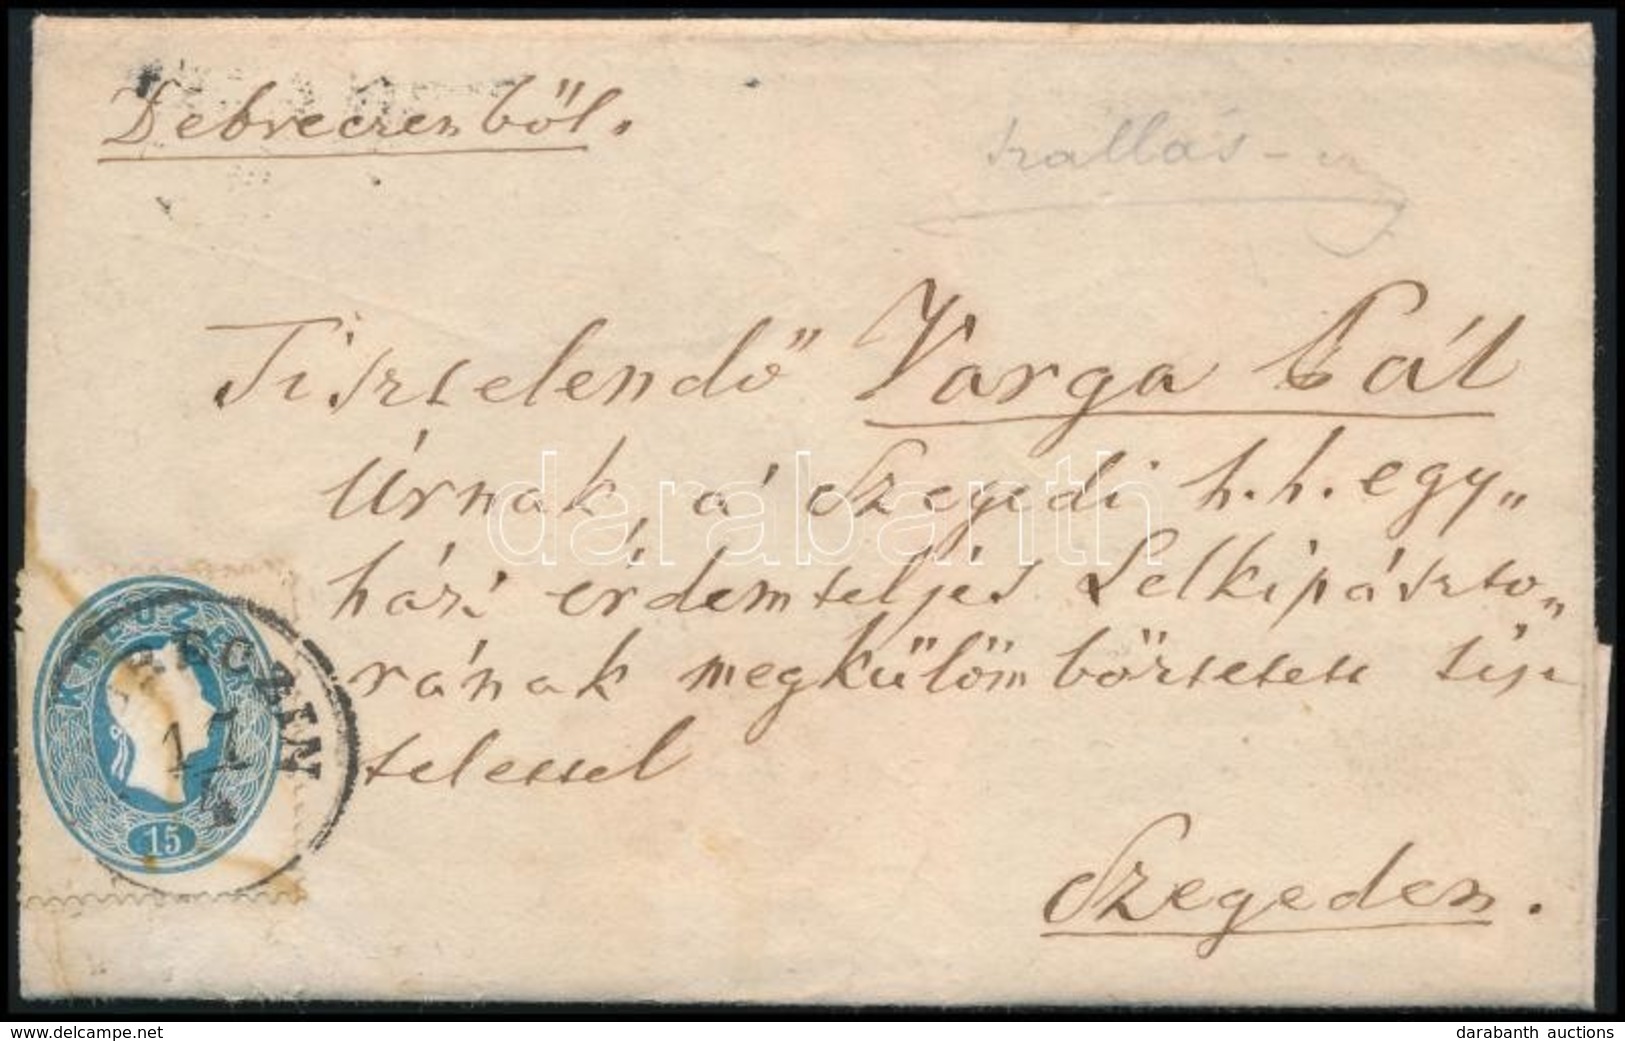 Debreczenből.
szállás-
Tisztelendő Varga Pál
Úrnak, a' Szegedi h.h. egy„
házi érdemteljes Lelkipászto„
rának megkülömböztetett tisz
telettel
Szegeden.
KREUZER
15
RECZIN
17
4
darabanth
www.delcampe.net
darabanth auctions